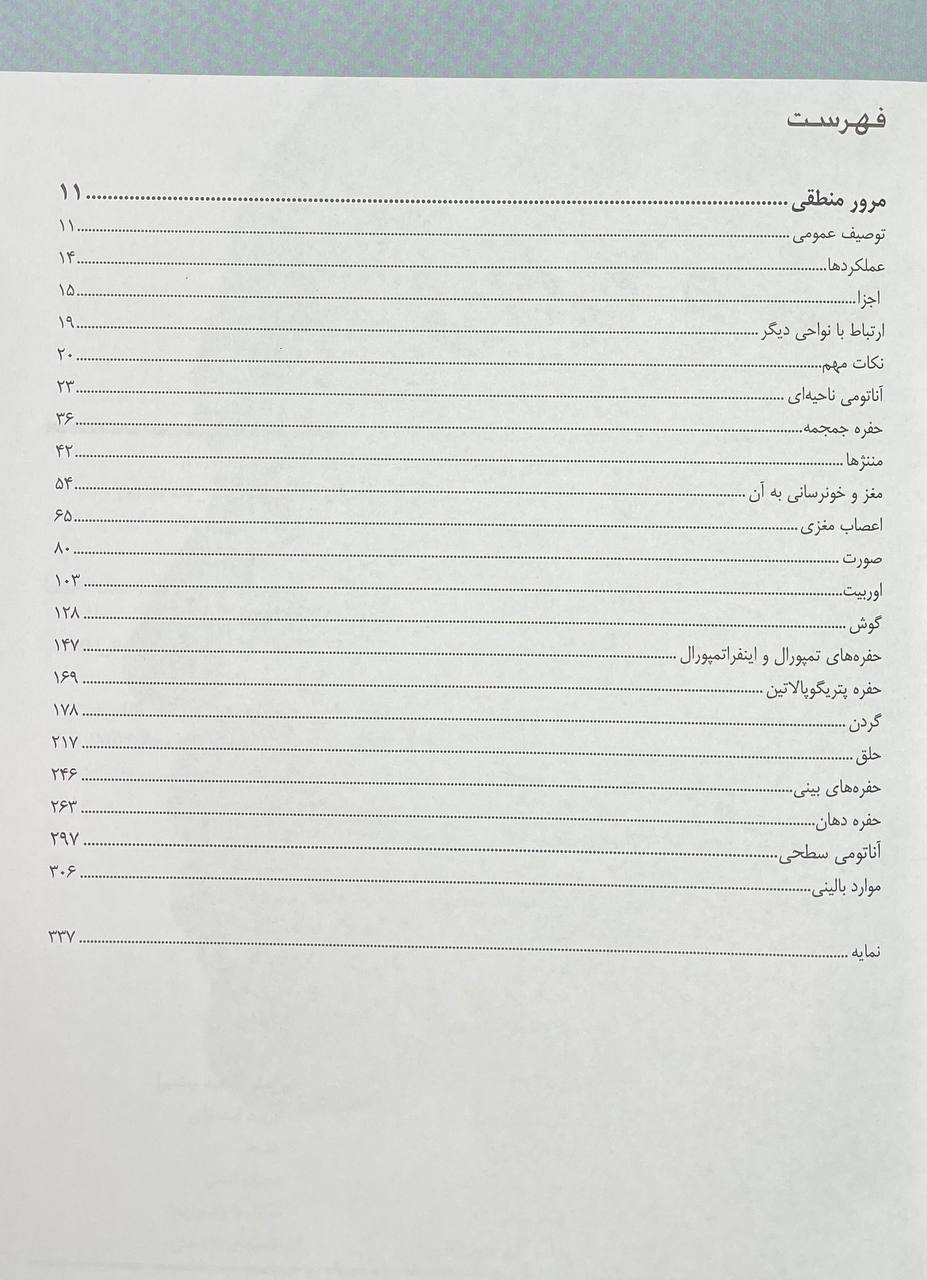 فهرست
مرور منطقی ........ ۱۱
توصیف عمومی ........ ۱۱
عملکردها ........ ۱۴
اجزا ........ ۱۵
ارتباط با نواحی دیگر ........ ۱۹
نکات مهم ........ ۲۰
آناتومی ناحیه‌ای ........ ۲۳
حفره جمجمه ........ ۳۶
مننژها ........ ۴۲
مغز و خونرسانی به آن ........ ۵۴
اعصاب مغزی ........ ۶۵
صورت ........ ۸۰
اوربیت ........ ۱۰۳
گوش ........ ۱۲۸
حفره‌های تمپورال و اینفراتمپورال ........ ۱۴۷
حفره پتریگوپالاتین ........ ۱۶۹
گردن ........ ۱۷۸
حلق ........ ۲۱۷
حفره‌های بینی ........ ۲۴۶
حفره دهان ........ ۲۶۳
آناتومی سطحی ........ ۲۹۷
موارد بالینی ........ ۳۰۶
نمایه ........ ۳۳۷